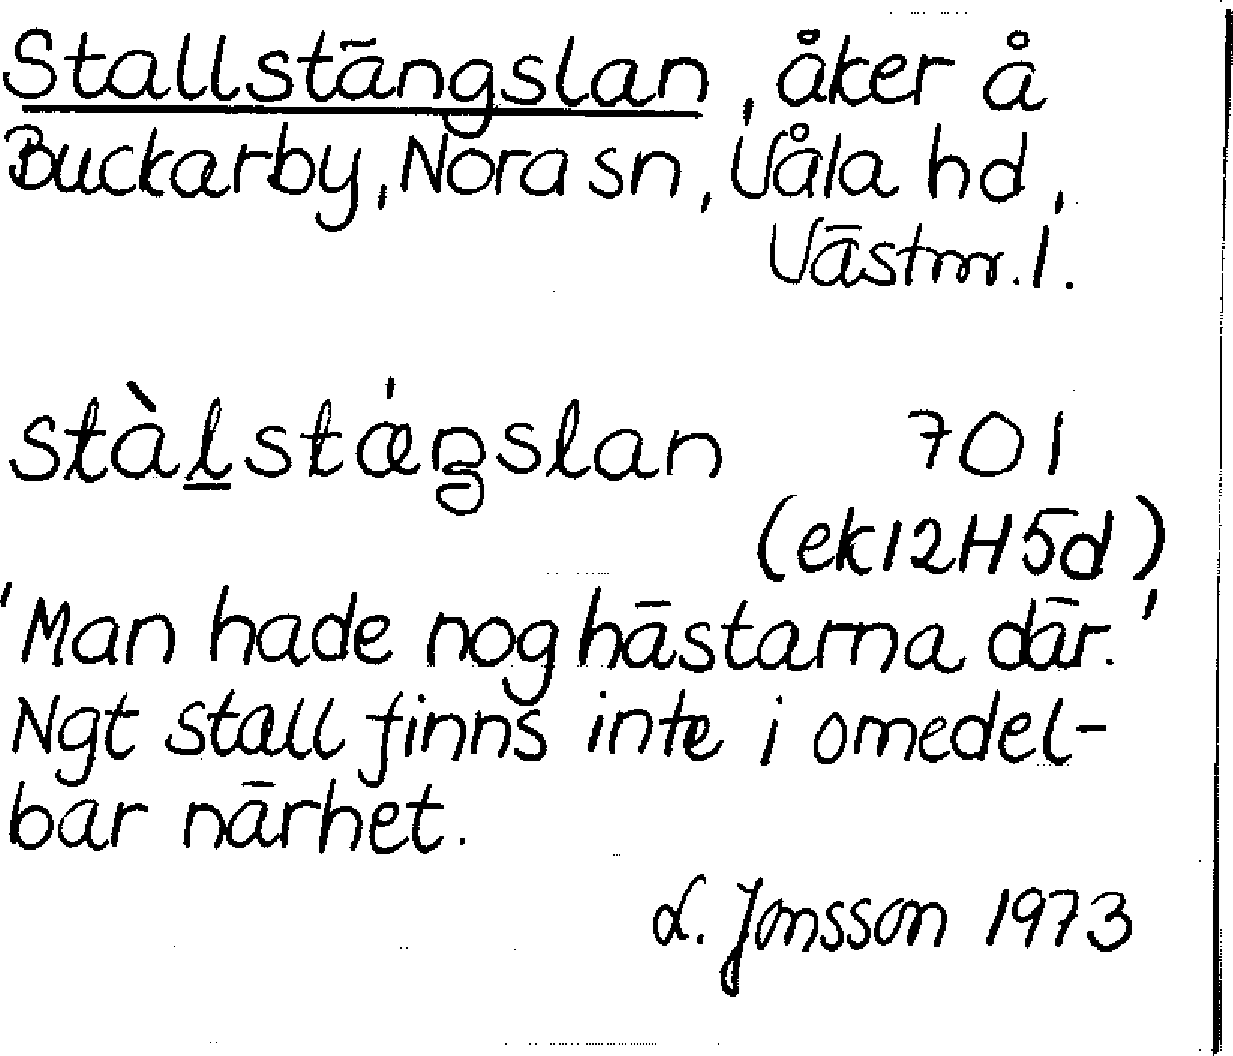 Stallstängslan, åker å
Buckarby, Nora sn, Våla hd,
Västmr. l.
stàl̲stǽŋslan 701
(ek 12H5d)
'Man hade nog hästarna där.'
Ngt stall finns inte i omedel-
bar närhet.
L. Jonsson 1973